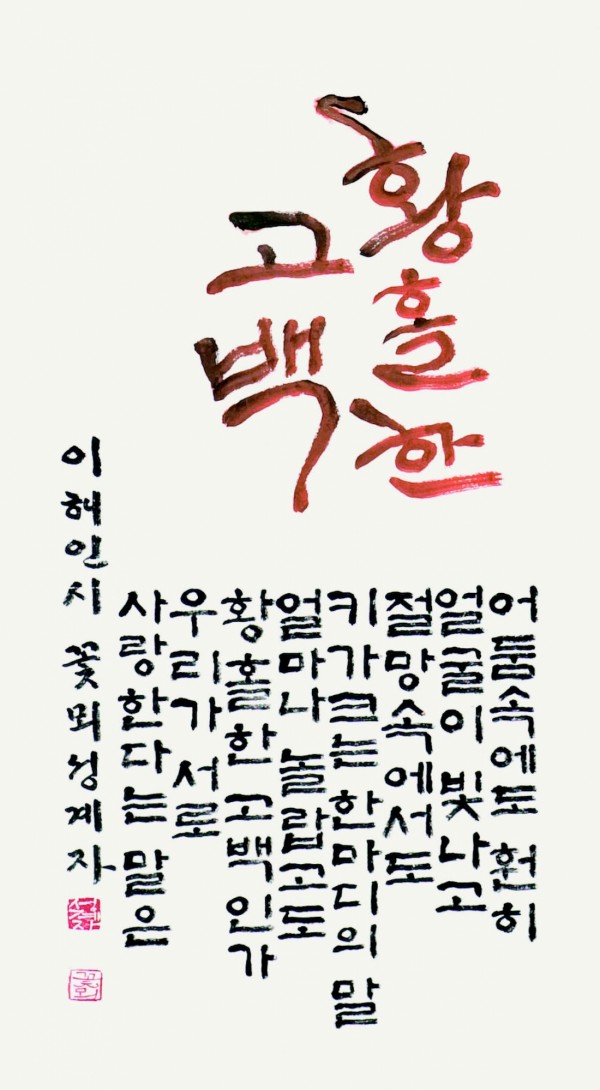 황홀한
고백
어둠속에도 훤히
얼굴이 빛나고
절망속에서도
키가크는 한마디의 말
얼마나 놀랍고도
황홀한 고백인가
우리가 서로
사랑한다는 말은
이해인시 꽃뫼성계자